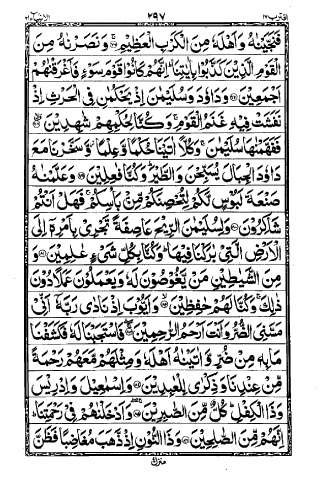 اقترب ١٧ ٢٩٧ الانبياء ٢١
فَنَجَّيْنٰهُ وَاَهْلَهٗ مِنَ الْكَرْبِ الْعَظِيْمِ ۚ وَنَصَرْنٰهُ مِنَ
الْقَوْمِ الَّذِيْنَ كَذَّبُوْا بِاٰيٰتِنَا ؕ اِنَّهُمْ كَانُوْا قَوْمَ سَوْءٍ فَاَغْرَقْنٰهُمْ
اَجْمَعِيْنَ ۝ وَدَاوٗدَ وَسُلَيْمٰنَ اِذْ يَحْكُمٰنِ فِى الْحَرْثِ اِذْ
نَفَشَتْ فِيْهِ غَنَمُ الْقَوْمِ ۚ وَكُنَّا لِحُكْمِهِمْ شٰهِدِيْنَ ۝
فَفَهَّمْنٰهَا سُلَيْمٰنَ ۚ وَكُلًّا اٰتَيْنَا حُكْمًا وَّعِلْمًا ؗ وَّسَخَّرْنَا مَعَ
دَاوٗدَ الْجِبَالَ يُسَبِّحْنَ وَالطَّيْرَ ؕ وَكُنَّا فٰعِلِيْنَ ۝ وَعَلَّمْنٰهُ
صَنْعَةَ لَبُوْسٍ لَّكُمْ لِتُحْصِنَكُمْ مِّنْۢ بَاْسِكُمْ ۚ فَهَلْ اَنْتُمْ
شٰكِرُوْنَ ۝ وَلِسُلَيْمٰنَ الرِّيْحَ عَاصِفَةً تَجْرِىْ بِاَمْرِهٖۤ اِلَى
الْاَرْضِ الَّتِىْ بٰرَكْنَا فِيْهَا ؕ وَكُنَّا بِكُلِّ شَىْءٍ عٰلِمِيْنَ ۝ وَ
مِنَ الشَّيٰطِيْنِ مَنْ يَّغُوْصُوْنَ لَهٗ وَيَعْمَلُوْنَ عَمَلًا دُوْنَ
ذٰلِكَ ۚ وَكُنَّا لَهُمْ حٰفِظِيْنَ ۝ وَاَيُّوْبَ اِذْ نَادٰى رَبَّهٗۤ اَنِّىْ
مَسَّنِىَ الضُّرُّ وَاَنْتَ اَرْحَمُ الرّٰحِمِيْنَ ۝ فَاسْتَجَبْنَا لَهٗ فَكَشَفْنَا
مَا بِهٖ مِنْ ضُرٍّ وَّاٰتَيْنٰهُ اَهْلَهٗ وَمِثْلَهُمْ مَّعَهُمْ رَحْمَةً
مِّنْ عِنْدِنَا وَذِكْرٰى لِلْعٰبِدِيْنَ ۝ وَاِسْمٰعِيْلَ وَاِدْرِيْسَ
وَذَا الْكِفْلِ ؕ كُلٌّ مِّنَ الصّٰبِرِيْنَ ۝ وَاَدْخَلْنٰهُمْ فِىْ رَحْمَتِنَا ؕ
اِنَّهُمْ مِّنَ الصّٰلِحِيْنَ ۝ وَذَا النُّوْنِ اِذْ ذَّهَبَ مُغَاضِبًا فَظَنَّ
منزل